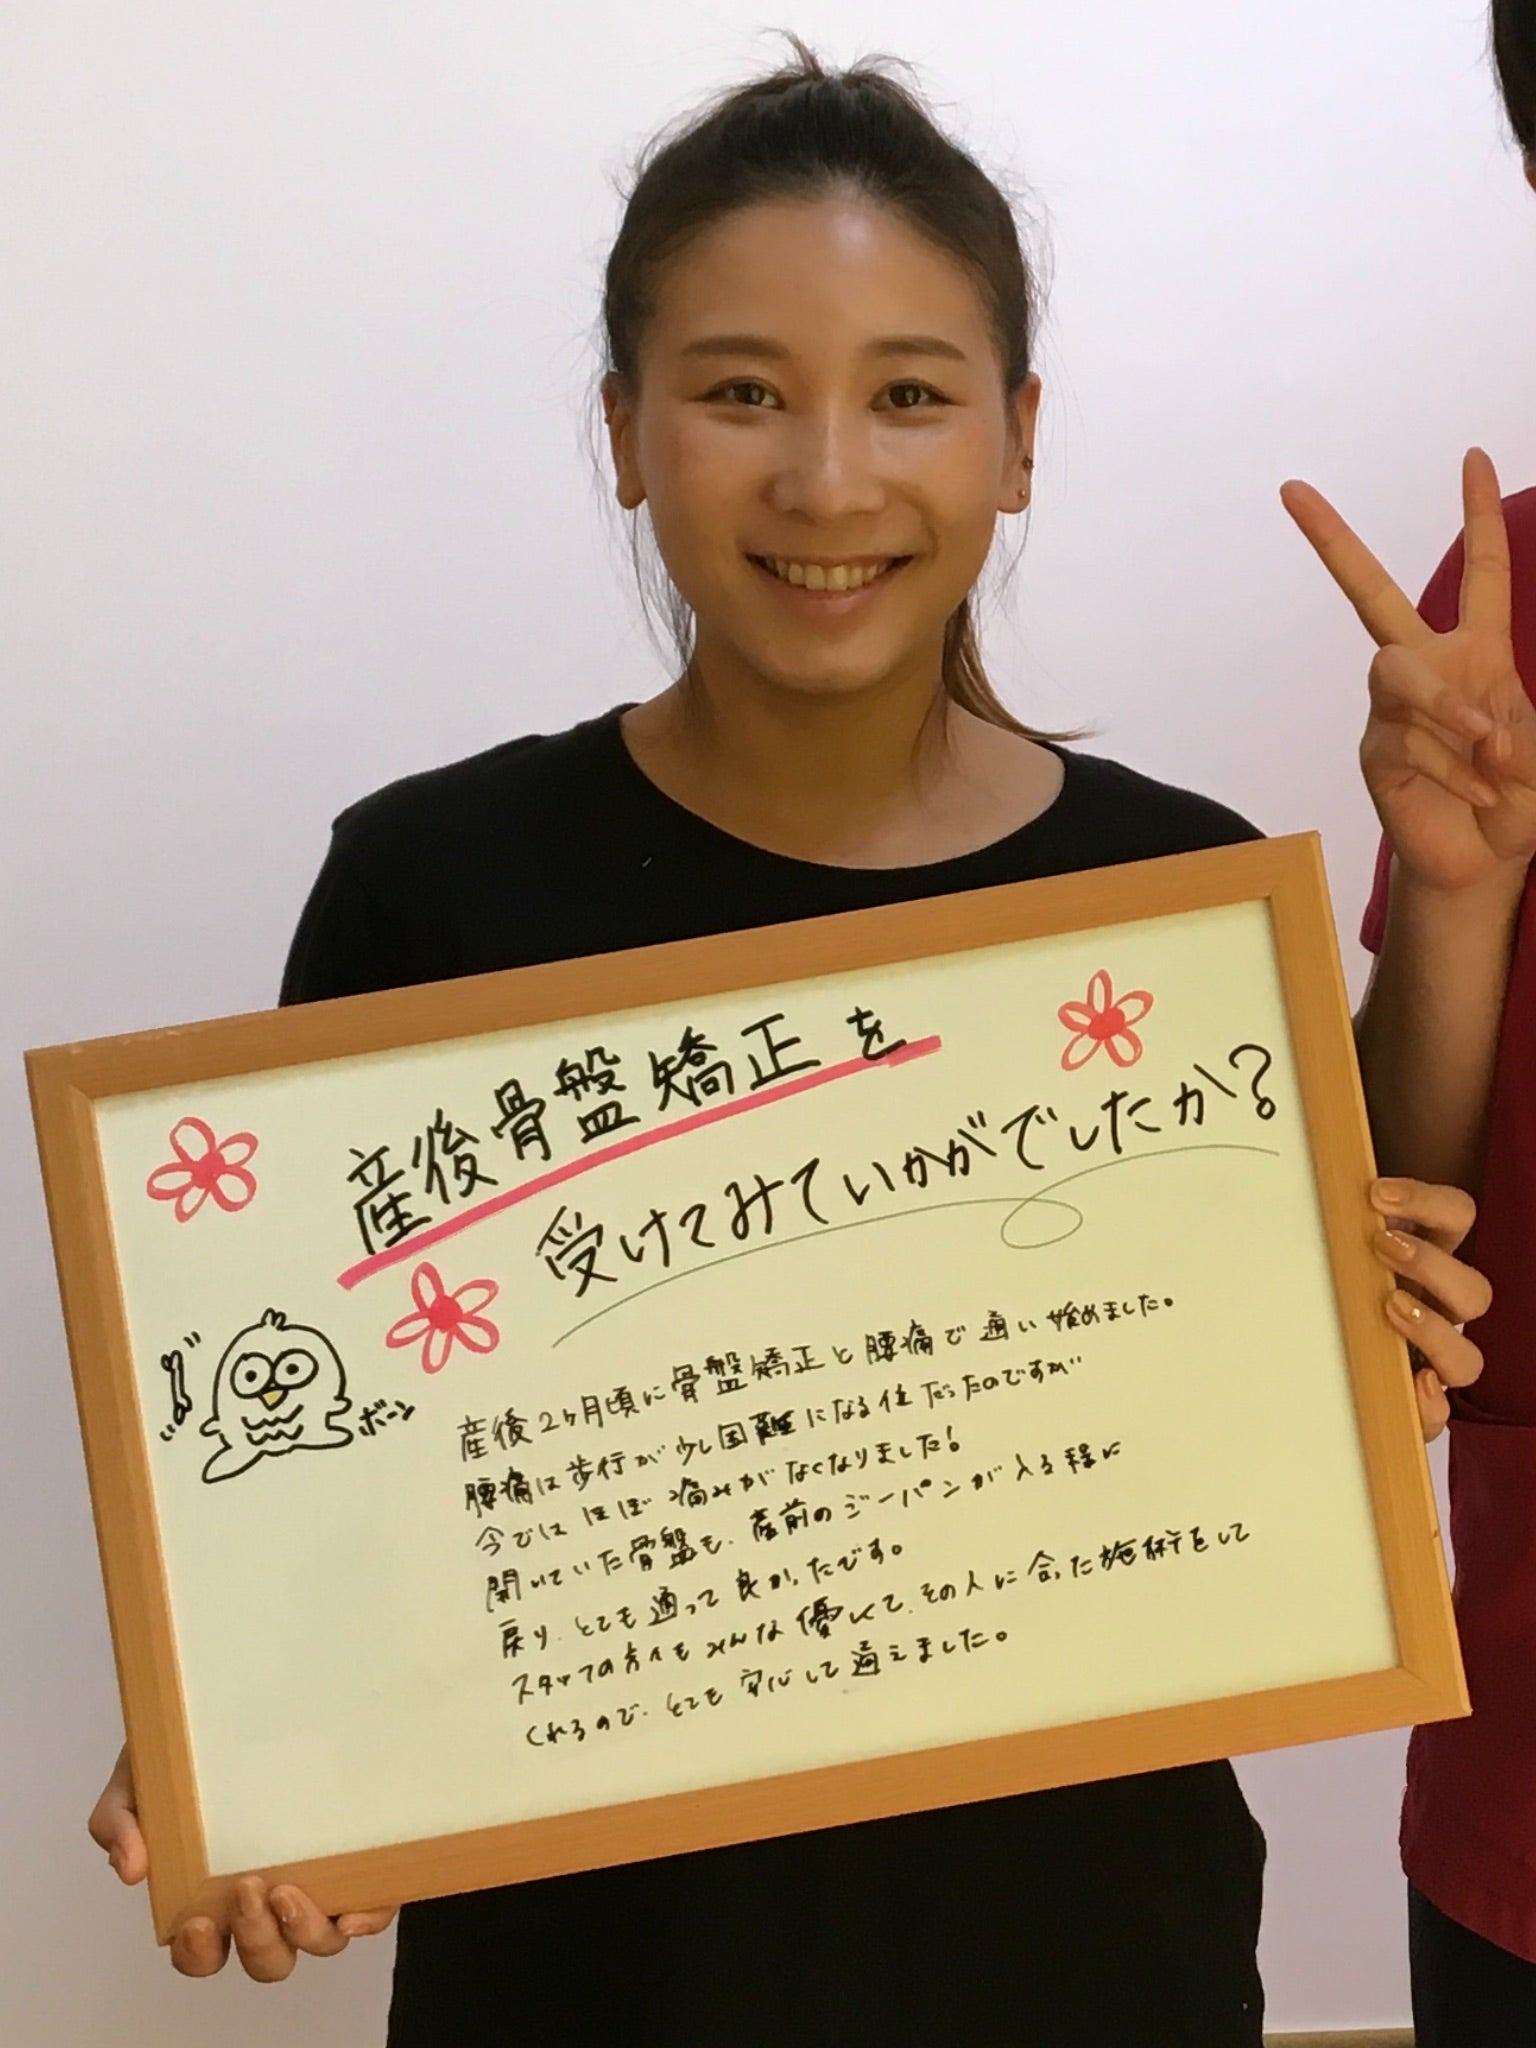 産後骨盤矯正を
受けてみていかがでしたか?
ボーン
産後2ヶ月頃に骨盤矯正と腰痛で通い始めました。
腰痛は歩行が少し困難になる位だったのですが
今ではほぼ痛みがなくなりました!
開いていた骨盤も、産前のジーパンが入る程に
戻り、とても通って良かったです。
スタッフの方々もみんな優しくて、その人に合った施術をして
くれるので、とても安心して通えました。